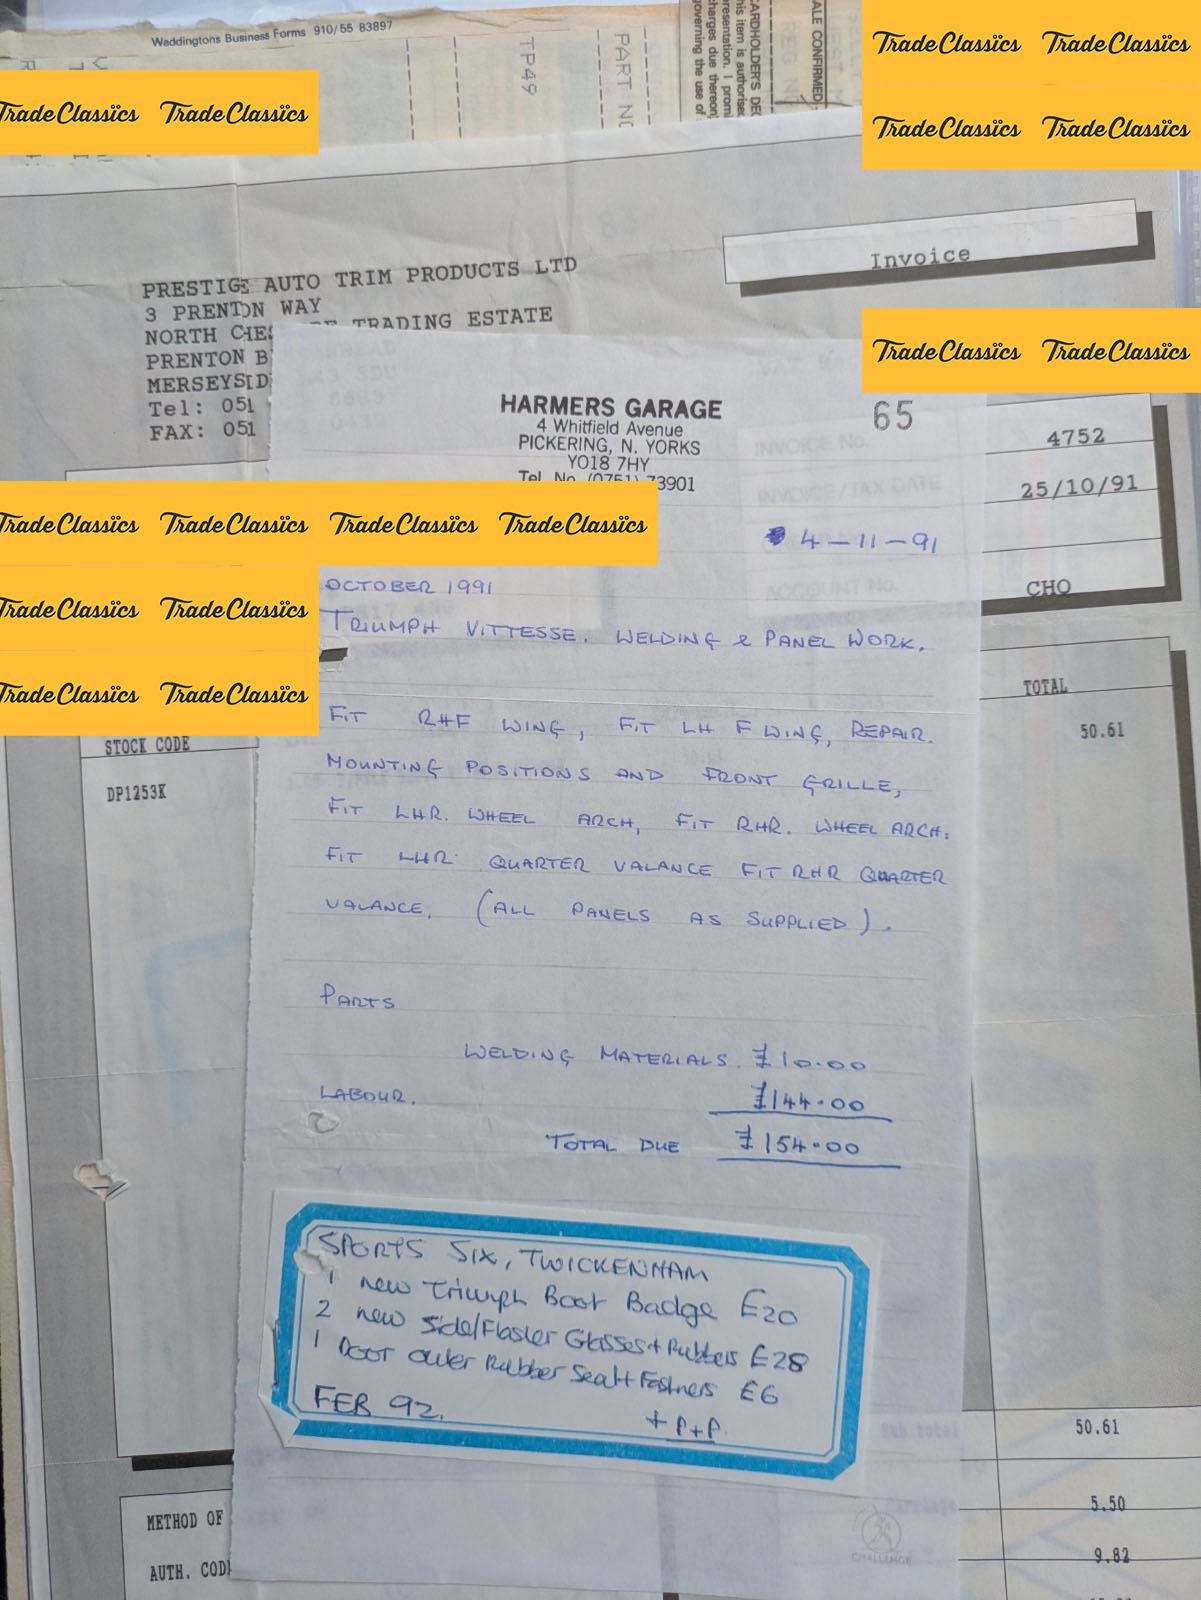 Waddingtons Business Forms 910/55 83897
TP49
PART NO
CARDHOLDER'S DE
his item is authorise
resentation. I promi
charges due thereon
governing the use of
ALE CONFIRMED
TradeClassics TradeClassics
TradeClassics TradeClassics
TradeClassics TradeClassics
Invoice
PRESTIGE AUTO TRIM PRODUCTS LTD
3 PRENTON WAY
NORTH CHES RE TRADING ESTATE
PRENTON B
MERSEYSID
Tel: 051
FAX: 051
TradeClassics TradeClassics
HARMERS GARAGE
4 Whitfield Avenue
PICKERING, N. YORKS
YO18 7HY
Tel. No. (0751) 73901
65
INVOICE No.
4752
INVOICE/TAX DATE
25/10/91
TradeClassics TradeClassics TradeClassics TradeClassics
4-11-91
ACCOUNT No.
CHQ
TradeClassics TradeClassics
OCTOBER 1991
TRIUMPH VITTESSE. WELDING & PANEL WORK.
TradeClassics TradeClassics
TOTAL
FIT RHF WING, FIT LH F WING, REPAIR.
50.61
STOCK CODE
MOUNTING POSITIONS AND FRONT GRILLE,
DP1253K
FIT LHR. WHEEL ARCH, FIT RHR. WHEEL ARCH.
FIT LHR QUARTER VALANCE FIT RHR QUARTER
VALANCE. (ALL PANELS AS SUPPLIED).
PARTS
WELDING MATERIALS. £10.00
LABOUR. £144.00
TOTAL DUE £154.00
SPORTS SIX, TWICKENHAM
1 new Triumph Boot Badge £20
2 new Side/Flasher Glasses + Rubbers £28
1 Door outer Rubber Seal + Fastners £6
FEB 92. + P+P.
Sub total
50.61
Carriage
5.50
METHOD OF
9.82
AUTH. COD
CHALLENGE